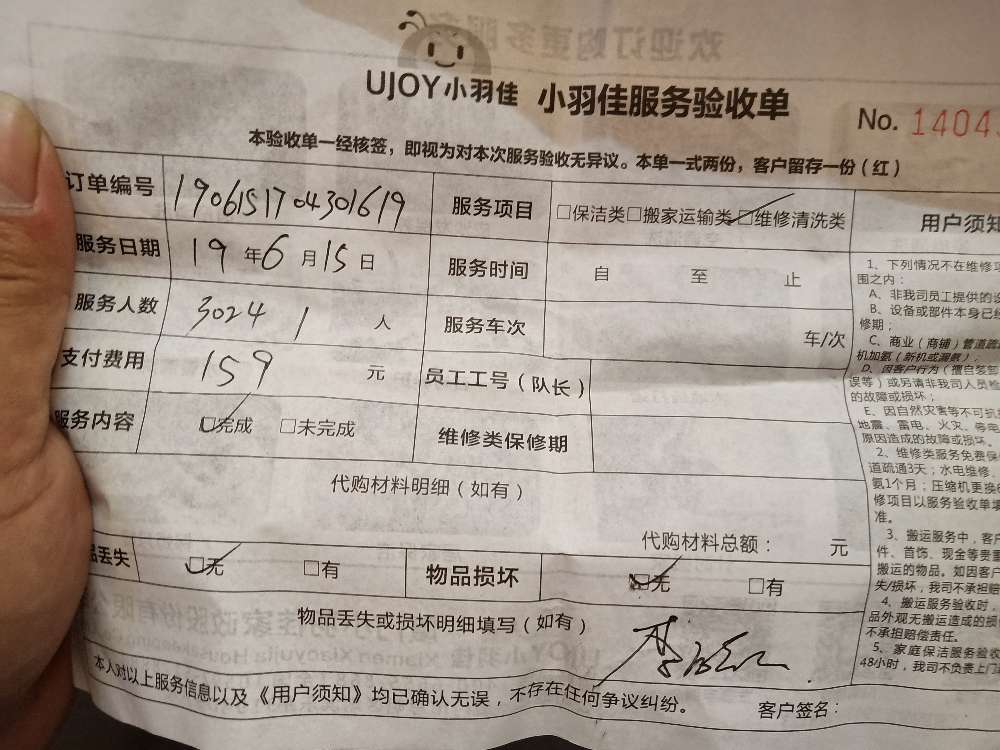 UJOY小羽佳 小羽佳服务验收单
No. 1404
本验收单一经核签，即视为对本次服务验收无异议。本单一式两份，客户留存一份（红）
订单编号 1906151704301619 服务项目 □保洁类□搬家运输类□维修清洗类 用户须知
服务日期 19年6月15日 服务时间 自 至 止
服务人数 3024 1 人 服务车次 车/次
支付费用 159 元 员工工号（队长）
服务内容 □完成 □未完成 维修类保修期
代购材料明细（如有）
代购材料总额： 元
品丢失 □无 □有 物品损坏 □无 □有
物品丢失或损坏明细填写（如有）
本人对以上服务信息以及《用户须知》均已确认无误，不存在任何争议纠纷。
客户签名：
1、下列情况不在维修项
围之内：
A、非我司员工提供的
B、设备或部件本身已经
修期；
C、商业（商铺）管道疏
机加氨（新机或漏氨）；
D、因客户行为（擅自装卸
误等）或另请非我司人员检
的故障或损坏；
E、因自然灾害等不可抗
地震、雷电、火灾、停电
原因造成的故障或损坏。
2、维修类服务免费保
道疏通3天；水电维修、
氨1个月；压缩机更换6
修项目以服务验收单
准。
3、搬运服务中，客户
件、首饰、现金等贵重
搬运的物品。如因客户
失/损坏，我司不承担赔
4、搬运服务验收时，
品外观无搬运造成的损
不承担赔偿责任。
5、家庭保洁服务验收
48小时，我司不负责上门